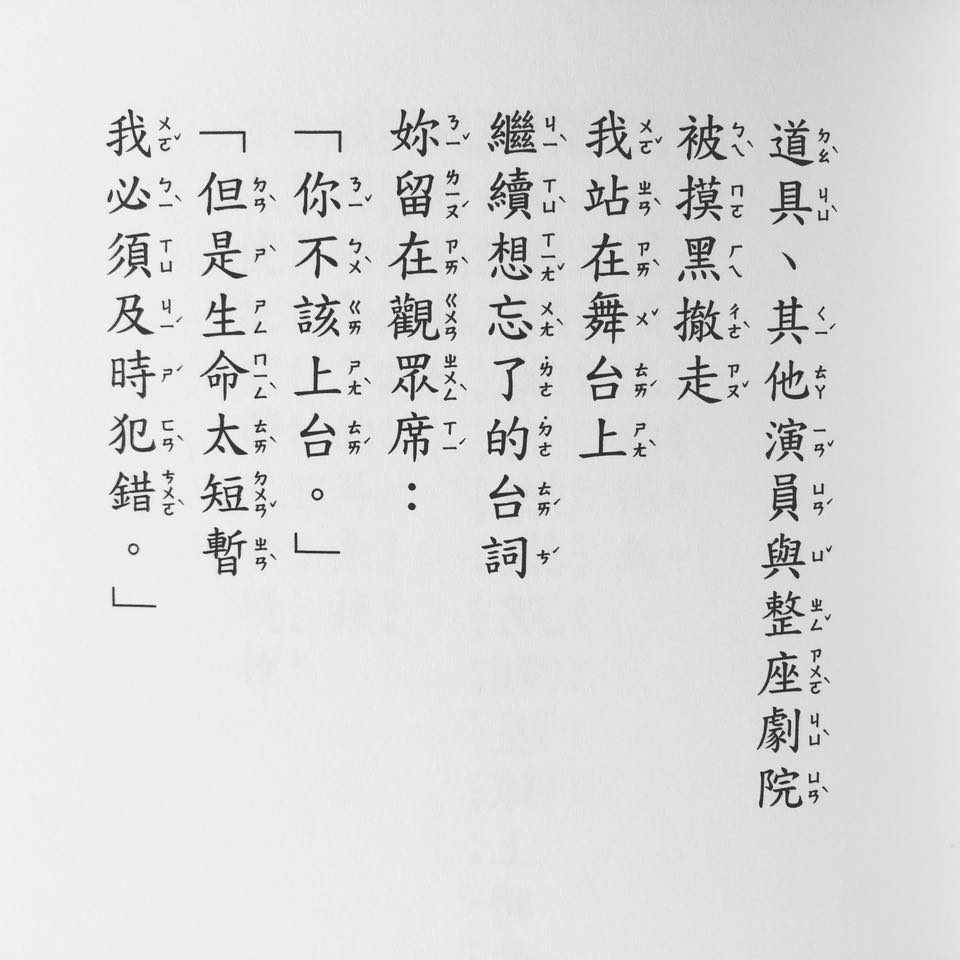 道具、其他演員與整座劇院
被摸黑撤走
我站在舞台上
繼續想忘了的台詞
妳留在觀眾席：
「你不該上台。」
「但是生命太短暫
我必須及時犯錯。」